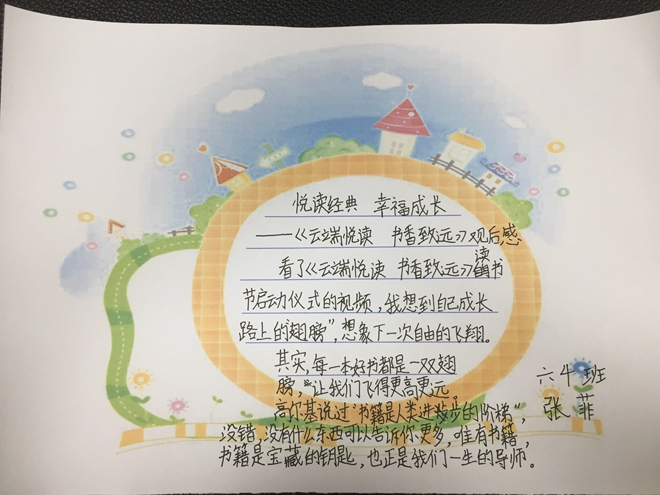 悦读经典 幸福成长
——《云端悦读 书香致远》观后感
看了《云端悦读 书香致远》读书
节启动仪式的视频，我想到自己成长
路上的"翅膀"，想象下一次自由的飞翔。
其实，每一本好书都是一双翅
膀，"让我们飞得更高更远。
高尔基说过"书籍是人类进步的阶梯"，
没错，没有什么东西可以告诉你更多，唯有书籍，
书籍是宝藏的钥匙，也正是我们一生的导师。
六 班
张菲